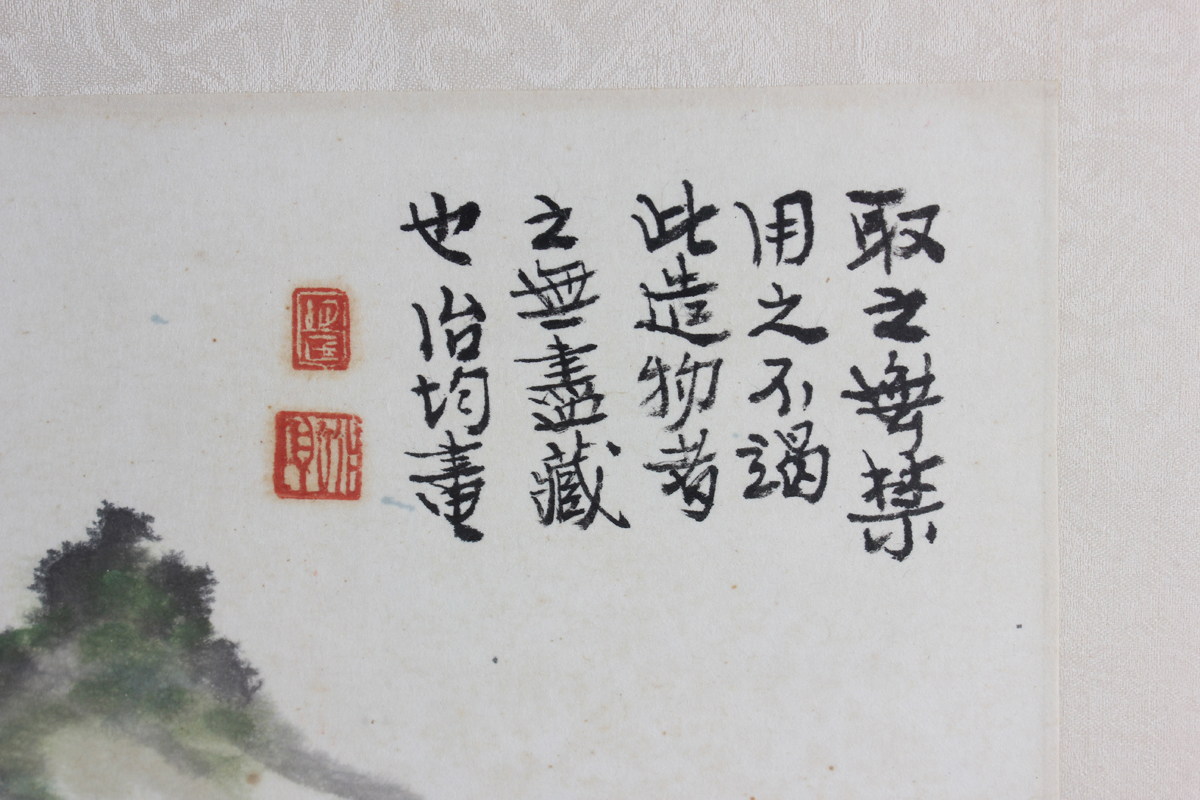 取之無禁
用之不竭
此造物者
之無盡藏
也 治均畫